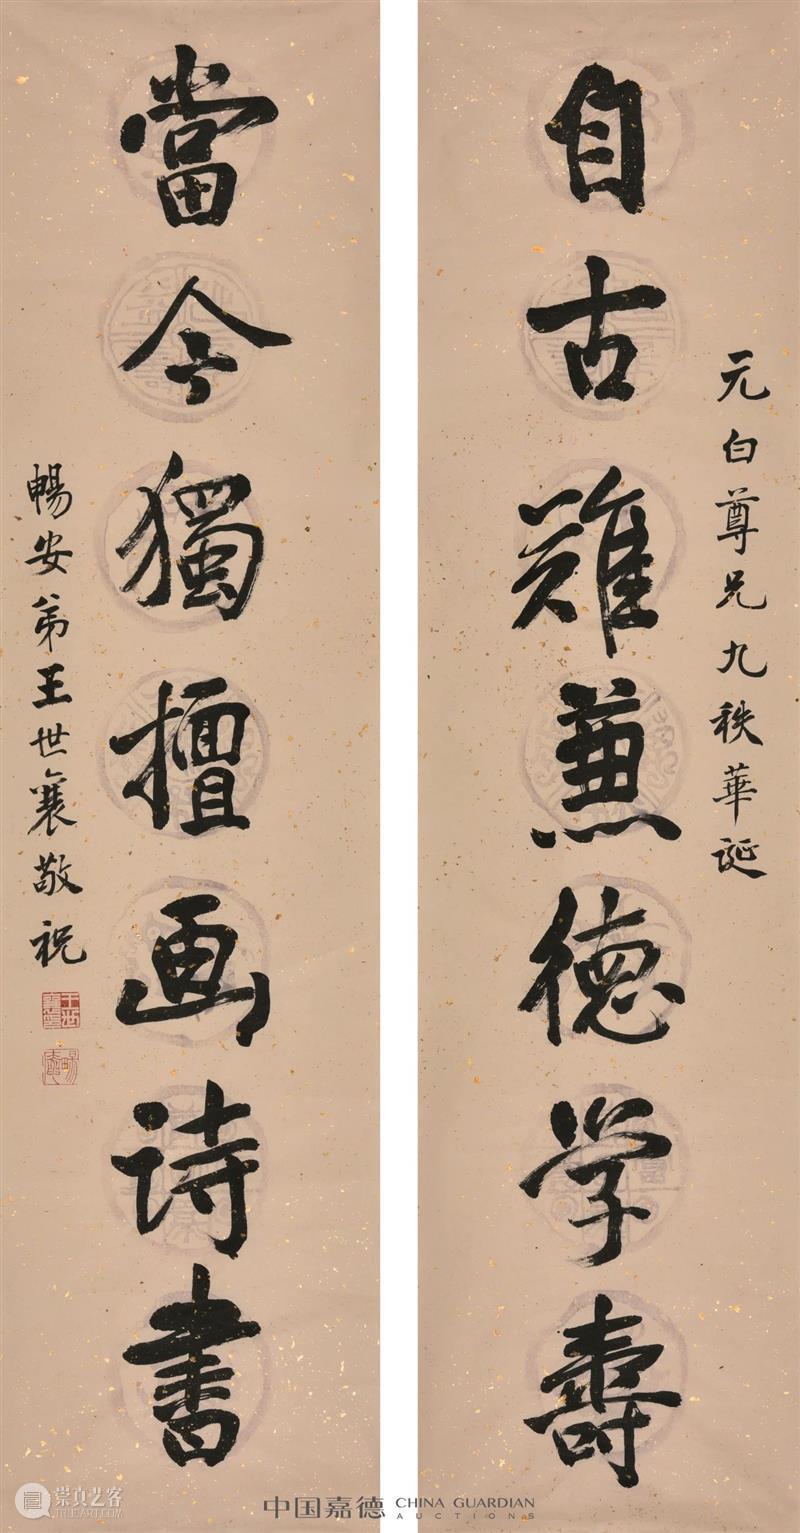 元白尊兄九秩華誕
自古難兼德学壽
當今獨擅画诗書
暢安弟王世襄敬祝
中国嘉德 CHINA GUARDIAN
AUCTIONS
崇真艺客
TRUEART.COM